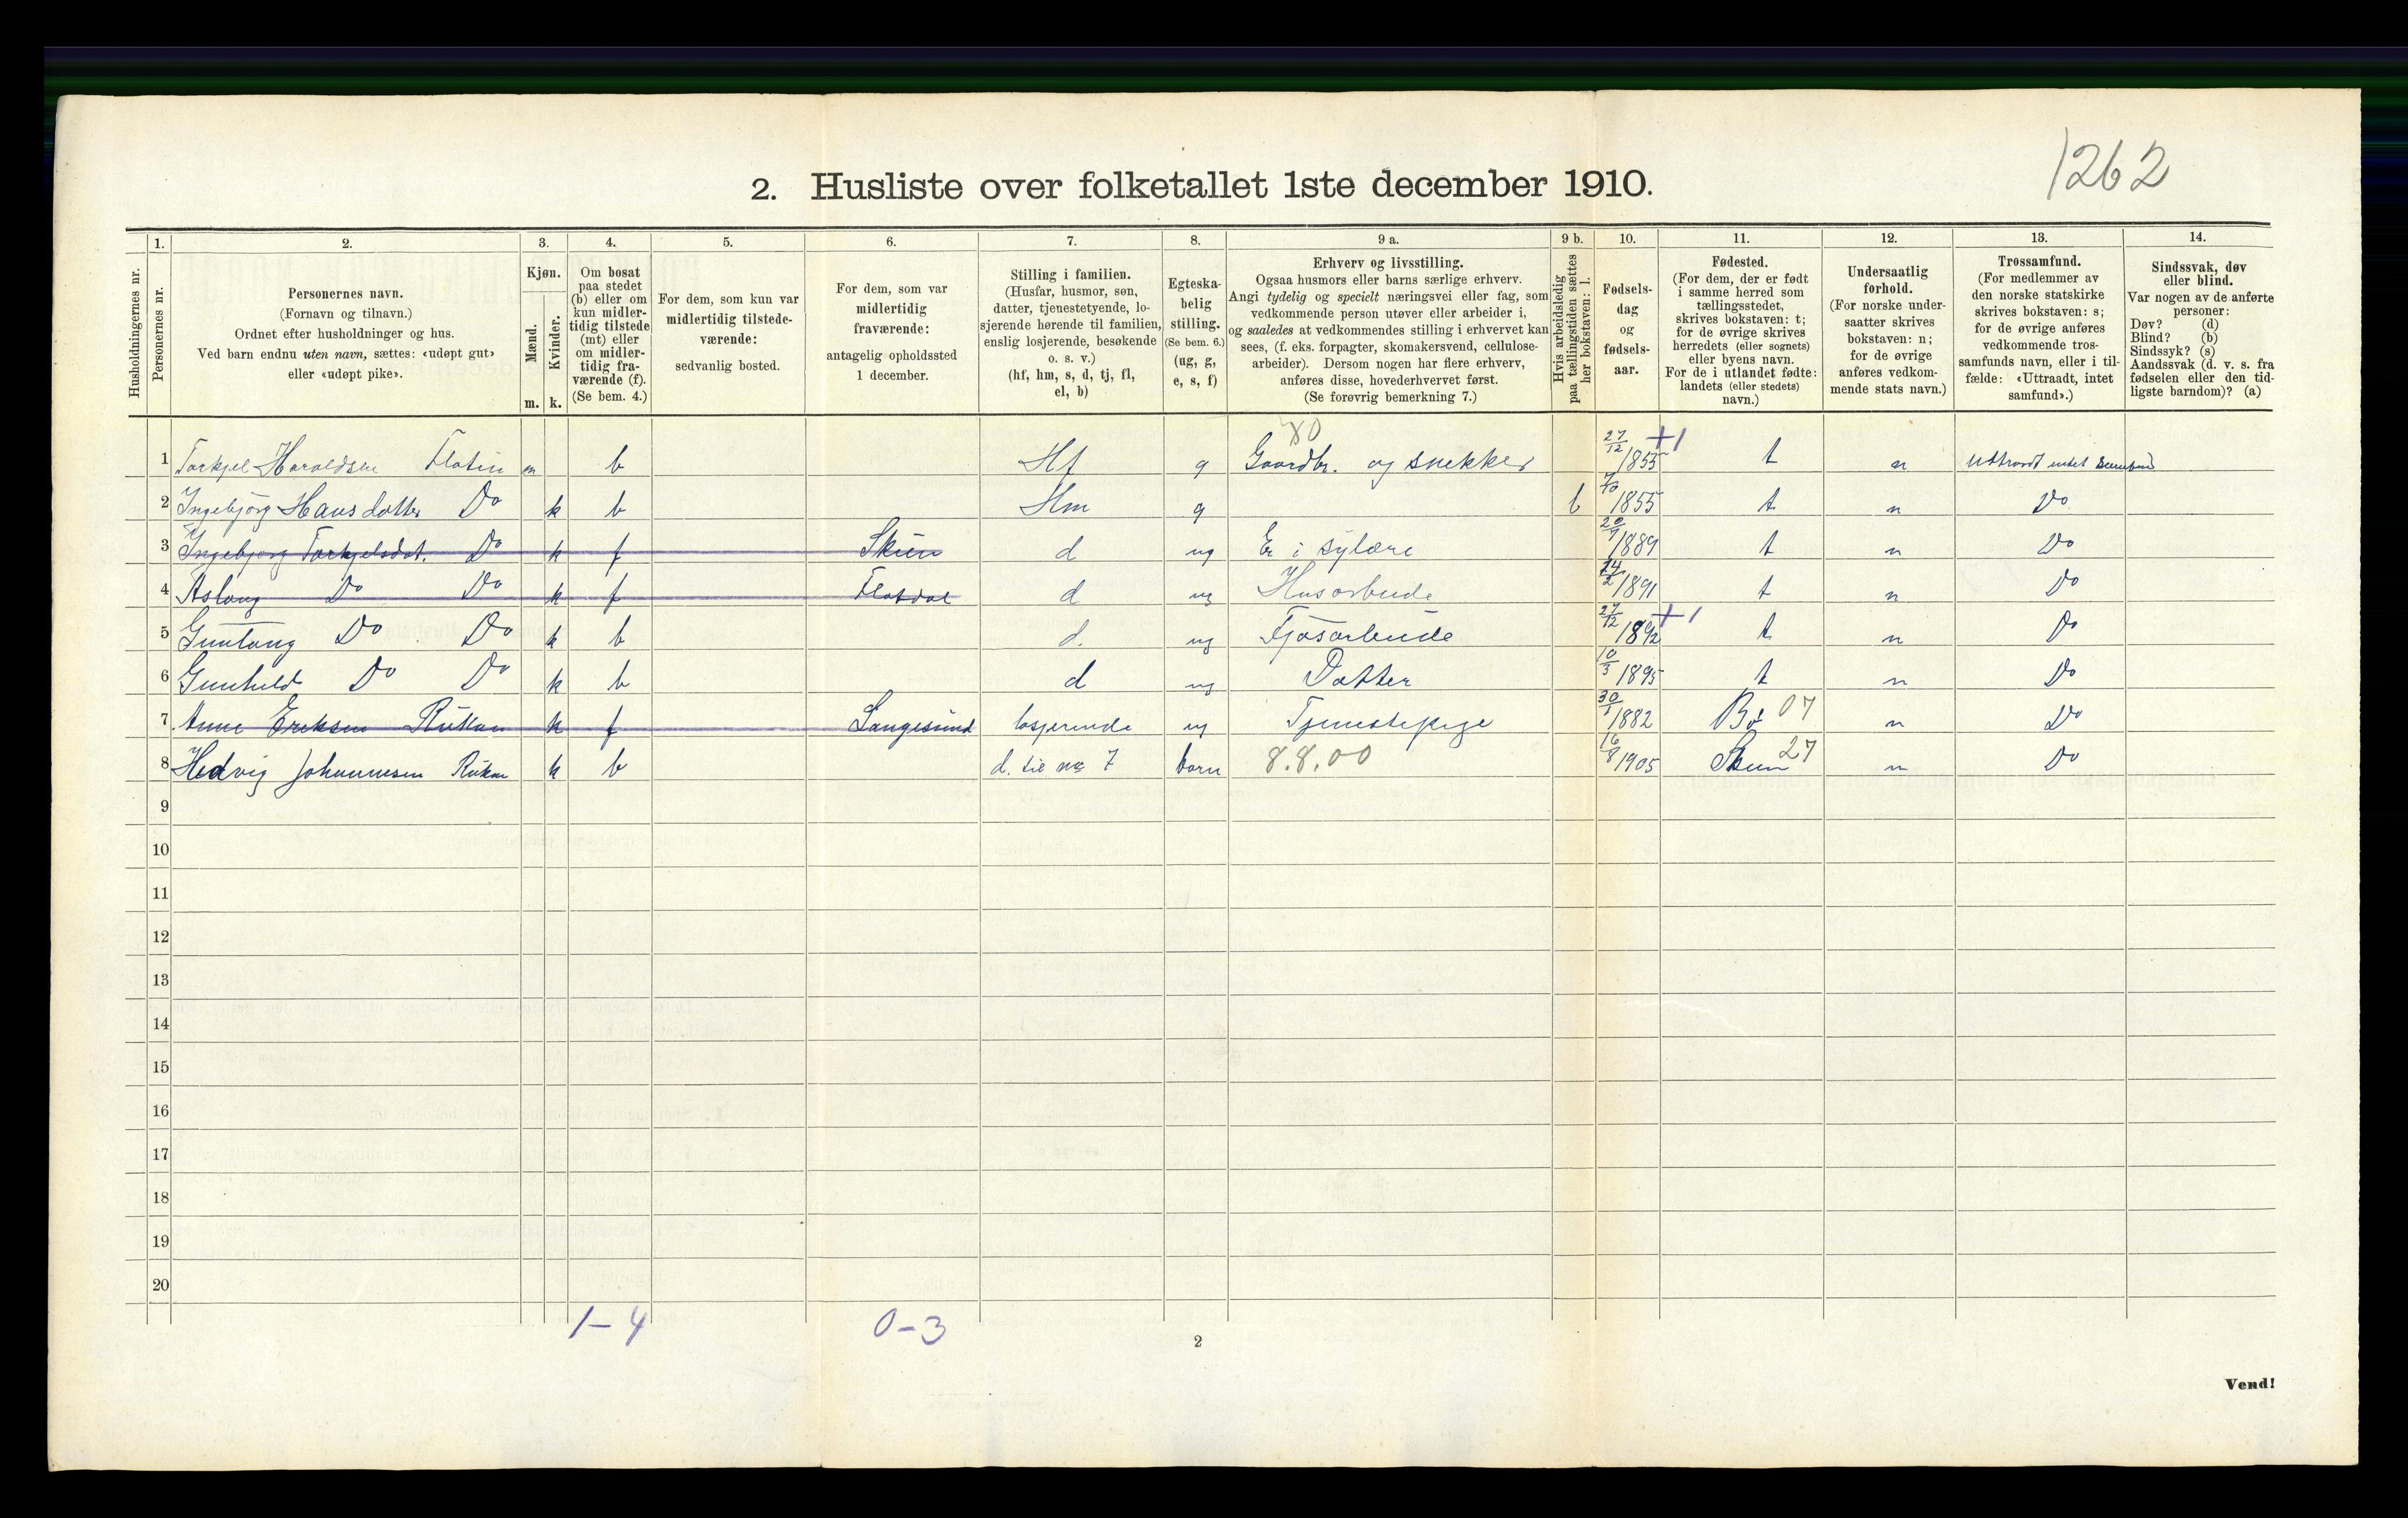 1262
2. Husliste over folketallet 1ste december 1910.
Husholdningernes nr.
1. Personernes nr.
2. Personernes navn.
(Fornavn og tilnavn.)
Ordnet efter husholdninger og hus.
Ved barn endnu uten navn, sættes: «udøpt gut»
eller «udøpt pike».
3. Kjøn.
Mænd. m.
Kvinder. k.
4. Om bosat
paa stedet
(b) eller om
kun midler-
tidig tilstede
(mt) eller
om midler-
tidig fra-
værende (f).
(Se bem. 4.)
5. For dem, som kun var
midlertidig tilstede-
værende:
sedvanlig bosted.
6. For dem, som var
midlertidig
fraværende:
antagelig opholdssted
1 december.
7. Stilling i familien.
(Husfar, husmor, søn,
datter, tjenestetyende, lo-
sjerende hørende til familien,
enslig losjerende, besøkende
o. s. v.)
(hf, hm, s, d, tj, fl,
el, b)
8. Egteska-
belig
stilling.
(Se bem. 6.)
(ug, g,
e, s, f)
9 a. Erhverv og livsstilling.
Ogsaa husmors eller barns særlige erhverv.
Angi tydelig og specielt næringsvei eller fag, som
vedkommende person utøver eller arbeider i,
og saaledes at vedkommendes stilling i erhvervet kan
sees, (f. eks. forpagter, skomakersvend, cellulose-
arbeider). Dersom nogen har flere erhverv,
anføres disse, hovederhvervet først.
(Se forøvrig bemerkning 7.)
9 b. Hvis arbeidsledig
paa tællingstiden sættes
her bokstaven: l.
10. Fødsels-
dag
og
fødsels-
aar.
11. Fødested.
(For dem, der er født
i samme herred som
tællingsstedet,
skrives bokstaven: t;
for de øvrige skrives
herredets (eller sognets)
eller byens navn.
For de i utlandet fødte:
landets (eller stedets)
navn.)
12. Undersaatlig
forhold.
(For norske under-
saatter skrives
bokstaven: n;
for de øvrige
anføres vedkom-
mende stats navn.)
13. Trossamfund.
(For medlemmer av
den norske statskirke
skrives bokstaven: s;
for de øvrige anføres
vedkommende tros-
samfunds navn, eller i til-
fælde: «Uttraadt, intet
samfund».)
14. Sindssvak, døv
eller blind.
Var nogen av de anførte
personer:
Døv? (d)
Blind? (b)
Sindssyk? (s)
Aandssvak (d. v. s. fra
fødselen eller den tid-
ligste barndom)? (a)
1 Torkjel Haroldsen Flatin m b Hf g Gaardbr. og snekker 27/12 1855 +1 t n Uttraadt intet
2 Ingebjörg Hansdatter Do k b Hm g 7/10 1855 t n Do
3 Ingebjörg Torkjelsdat. Do k f Skien d ug Er i sylære 20/7 1889 t n Do
4 Aslaug Do Do k f Flatdal d ug Husarbeide 24/2 1891 t n Do
5 Gunlaug Do Do k b d. ug Fjösarbeide 27/12 1892 +1 t n Do
6 Gunhild Do Do k b d ug Datter 10/3 1895 t n Do
7 Anne Eriksen Rukan k f Langesund losjerende ug Tjenestepige 1882 Bö 07 n Do
8 Hedvig Johannesen Rukan k b d. til no 7 barn 8.8.00 16/8 1905 Skien 27 n Do
9
10
11
12
13
14
15
16
17
18
19
20
1-4 0-3
2
Vend!